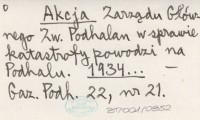 Akcja Zarządu Głów
nego Zw. Podhalan w sprawie
katastrofy powodzi na
Podhalu. 1934... —
Gaz. Podh. 22, nr 21.